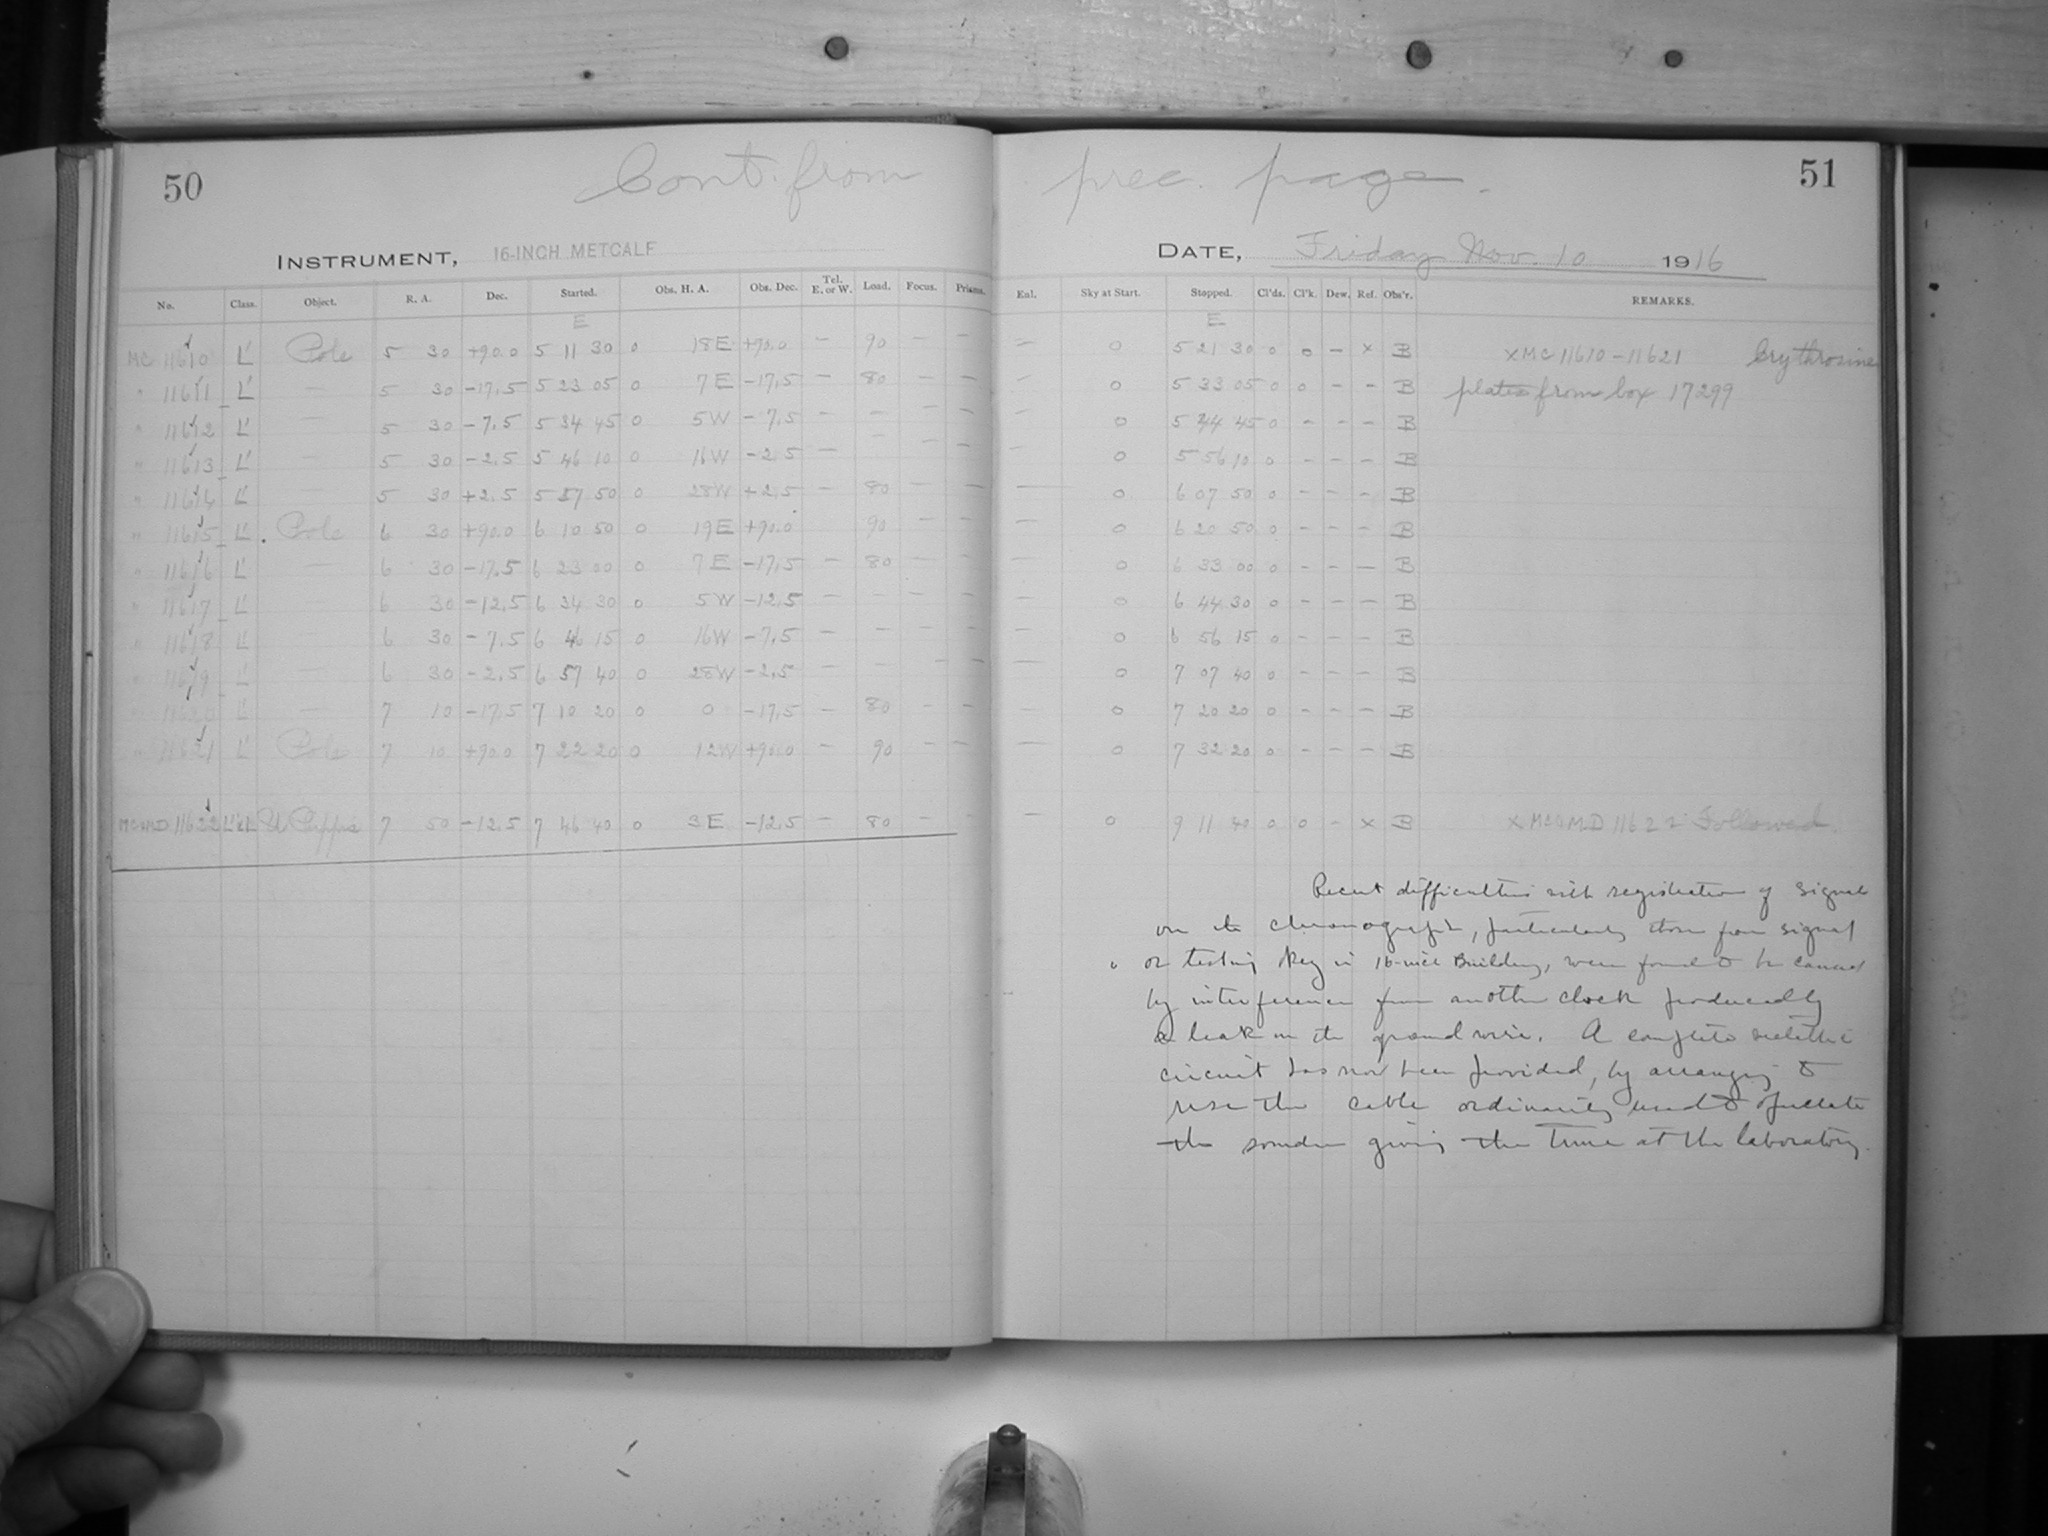 50
Cont. from prec. page.
51
INSTRUMENT, 16-INCH METCALF
DATE, Friday Nov. 10 1916
No. Class. Object. R. A. Dec. Started. Obs. H. A. Obs. Dec. Tel. E. or W. Load. Focus. Prisms. Enl. Sky at Start. Stopped. Cl'ds. Cl'k. Dew. Ref. Obs'r. REMARKS.
E E
MC 11610 L' Pole 5 30 +90.0 5 11 30 0 18E +90.0 — 90 — — — 0 5 21 30 0 0 — x B x MC 11610-11621 Erythrosine
" 11611 L' — 5 30 -17.5 5 23 05 0 7E -17.5 — 80 — — — 0 5 33 05 0 0 — — B plates from box 17299
" 11612 L' — 5 30 -7.5 5 34 45 0 5W -7.5 — — — — — 0 5 44 45 0 — — — B
" 11613 L' — 5 30 -2.5 5 46 10 0 16W -2.5 — — — — — 0 5 56 10 0 — — — B
" 11614 L' — 5 30 +2.5 5 57 50 0 28W +2.5 — 80 — — — 0 6 07 50 0 — — — B
" 11615 L' Pole 6 30 +90.0 6 10 50 0 19E +90.0 90 — — — 0 6 20 50 0 — — — B
" 11616 L' — 6 30 -17.5 6 23 00 0 7E -17.5 — 80 — — — 0 6 33 00 0 — — — B
" 11617 L' — 6 30 -12.5 6 34 30 0 5W -12.5 — — — — — 0 6 44 30 0 — — — B
" 11618 L' — 6 30 -7.5 6 46 15 0 16W -7.5 — — — — — 0 6 56 15 0 — — — B
" 11619 L' — 6 30 -2.5 6 57 40 0 28W -2.5 — — — — — 0 7 07 40 0 — — — B
" 11620 L' — 7 10 -17.5 7 10 20 0 0 -17.5 — 80 — — — 0 7 20 20 0 — — — B
" 11621 L' Pole 7 10 +90.0 7 22 20 0 12W +90.0 — 90 — — — 0 7 32 20 0 — — — B
MC&MD 11622 L'&L U Puppis 7 50 -12.5 7 46 40 0 3E -12.5 — 80 — — — 0 9 11 40 0 0 — x B x MC&MD 11622 Followed.
Recent difficulties with registration of signals
on the chronograph, particularly those from signal
or testing key in 16-inch Building, were found to be caused
by interference from another clock produced by
a leak in the ground wire. A complete metallic
circuit has now been provided, by arranging to
use the cable ordinarily used to operate
the sounder giving the time at the laboratory.